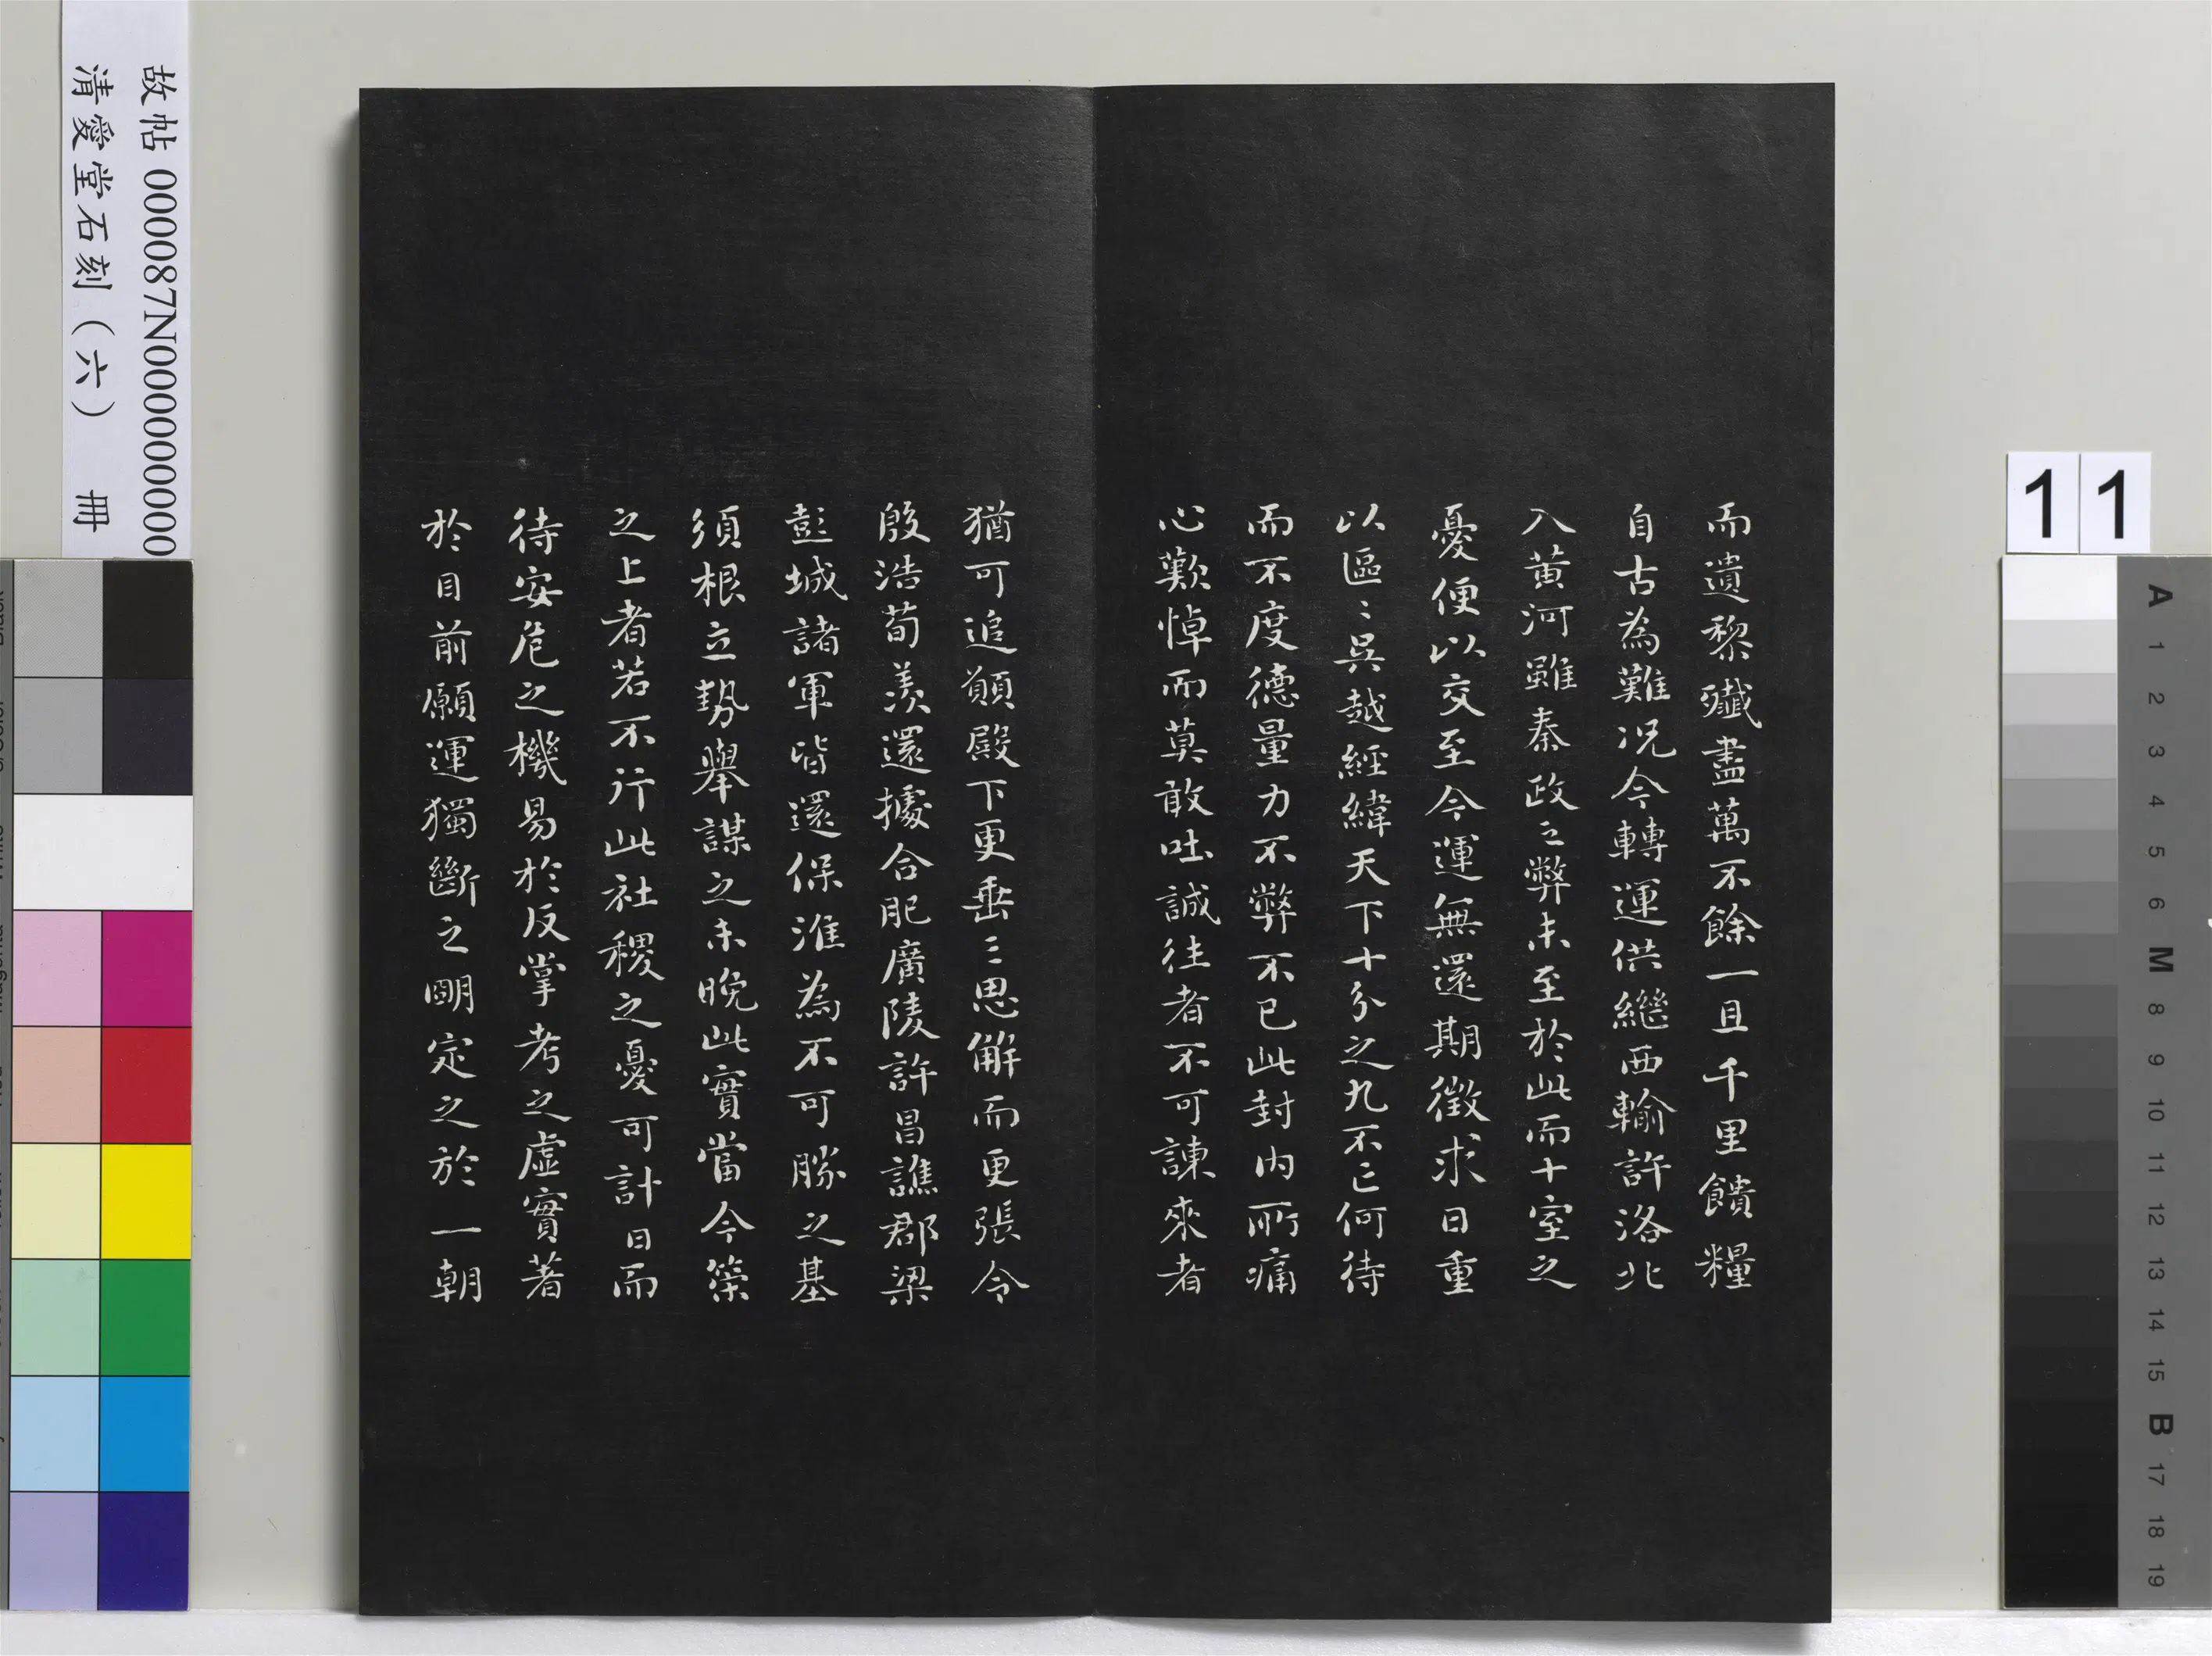 而遺黎殲盡萬不餘一且千里饋糧
自古為難況今轉運供繼西輸許洛北
入黃河雖秦政之弊未至於此而十室之
憂便以交至今運無還期徵求日重
以區〻吳越經緯天下十分之九不亡何待
而不度德量力不弊不已此封內所痛
心歎悼而莫敢吐誠往者不可諫來者
猶可追願殿下更垂三思解而更張令
殷浩荀羨還據合肥廣陵許昌譙郡梁
彭城諸軍皆還保淮為不可勝之基
須根立勢舉謀之未晚此實當今策
之上者若不行此社稷之憂可計日而
待安危之機易於反掌考之虛實著
於目前願運獨斷之明定之於一朝
故帖 000087N000000000
清愛堂石刻（六） 冊
11
A
1
2
3
4
5
6
M
8
9
10
11
12
13
14
15
B
17
18
19